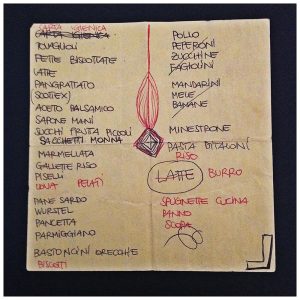 CARTA IGIENICA
CARTA IGIENICA
TOVAGLIOLI
FETTE BISCOTTATE
LATTE
PANGRATTATO
SCOTTEX
ACETO BALSAMICO
SAPONE MANI
SUCCHI FRUTTA PICCOLI
SACCHETTI MONNA
MARMELLATA
GALLETTE RISO
PISELLI
UOVA PELATI
PANE SARDO
WURSTEL
PANCETTA
PARMIGIANO
BASTONCINI ORECCHIE
BISCOTTI
POLLO
PEPERONI
ZUCCHINE
FAGIOLINI
MANDARINI
MELE
BANANE
MINESTRONE
PASTA DITALONI
RISO
LATTE BURRO
SPUGNETTE CUCINA
PANNO
SCOPA